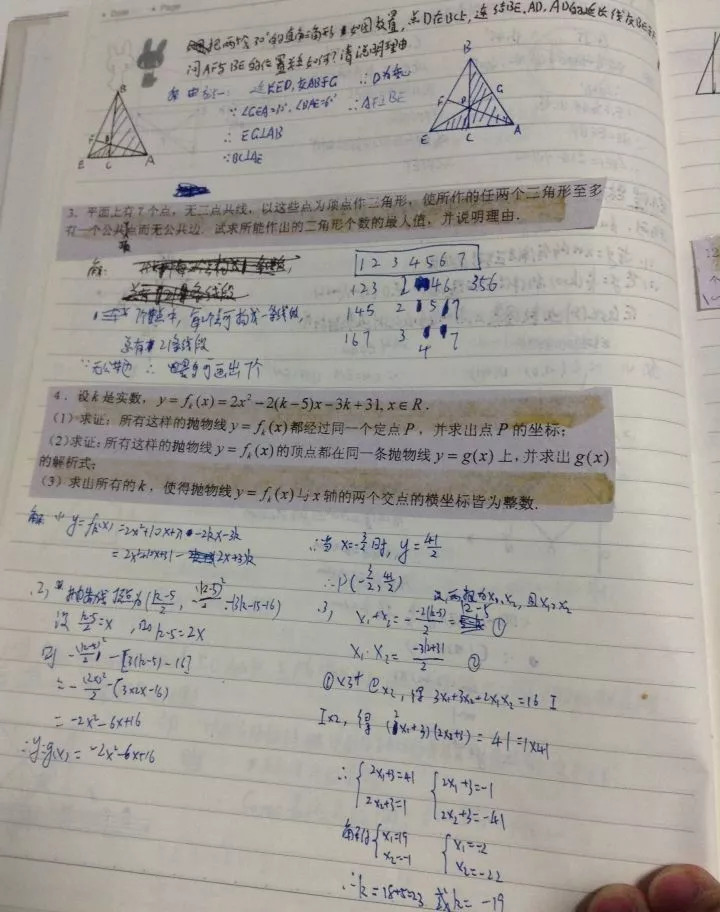 把两个30°的直角三角形如图放置,点D在BC上,连结BE,AD,AD的延长线交BE于
问AF与BE的位置关系如何?请说明理由
连ED,交AB于G ∴D为垂心
∴AF⊥BE
∴EG⊥AB
∵BC⊥AE
B
F
D
E
C
A
B
G
F
E
C
A
3. 平面上有7个点,无三点共线,以这些点为顶点作三角形,使所作的任两个三角形至多
有一个公共点而无公共边. 试求所能作出的三角形个数的最大值,并说明理由.
解:
1 2 3 4 5 6 7
123 2 46 356
145 2 5 7
167 3 4 7
总有21条线段
∵无公共边 ∴ 可画出7个
4. 设k是实数, y = f_k(x) = 2x² − 2(k−5)x − 3k + 31, x ∈ R.
(1)求证:所有这样的抛物线 y = f_k(x) 都经过同一个定点 P,并求出点 P 的坐标;
(2)求证:所有这样的抛物线 y = f_k(x) 的顶点都在同一条抛物线 y = g(x) 上,并求出 g(x)
的解析式;
(3)求出所有的 k,使得抛物线 y = f_k(x) 与 x 轴的两个交点的横坐标皆为整数.
解 (1) y=f_k(x)=2x²+10x+31-2kx-3k
=2x²+10x+31-
∴当 x=-3/2 时, y=41/2
∴P(-3/2, 41/2)
2)
设 (k-5)/2=x ,即 k-5=2x
则 -(k-5)²/2 - [3(k-5)-16]
= -(2x)²/2 - (3×2x-16)
= -2x²-6x+16
∴y=g(x)=-2x²-6x+16
设两根为x₁,x₂,且x₁≥x₂
3) x₁+x₂=-(-2(k-5))/2=k-5 ①
x₁·x₂=(-3k+31)/2 ②
①×3+②×2,得 3x₁+3x₂+2x₁x₂=16 Ⅰ
Ⅰ×2,得 (2x₁+3)(2x₂+3)=41=1×41
∴ {2x₁+3=41 {2x₁+3=-1
2x₂+3=1 2x₂+3=-41
解得 {x₁=19 {x₁=-2
x₂=-1 x₂=-22
∴k=18+5=23 或k=-19